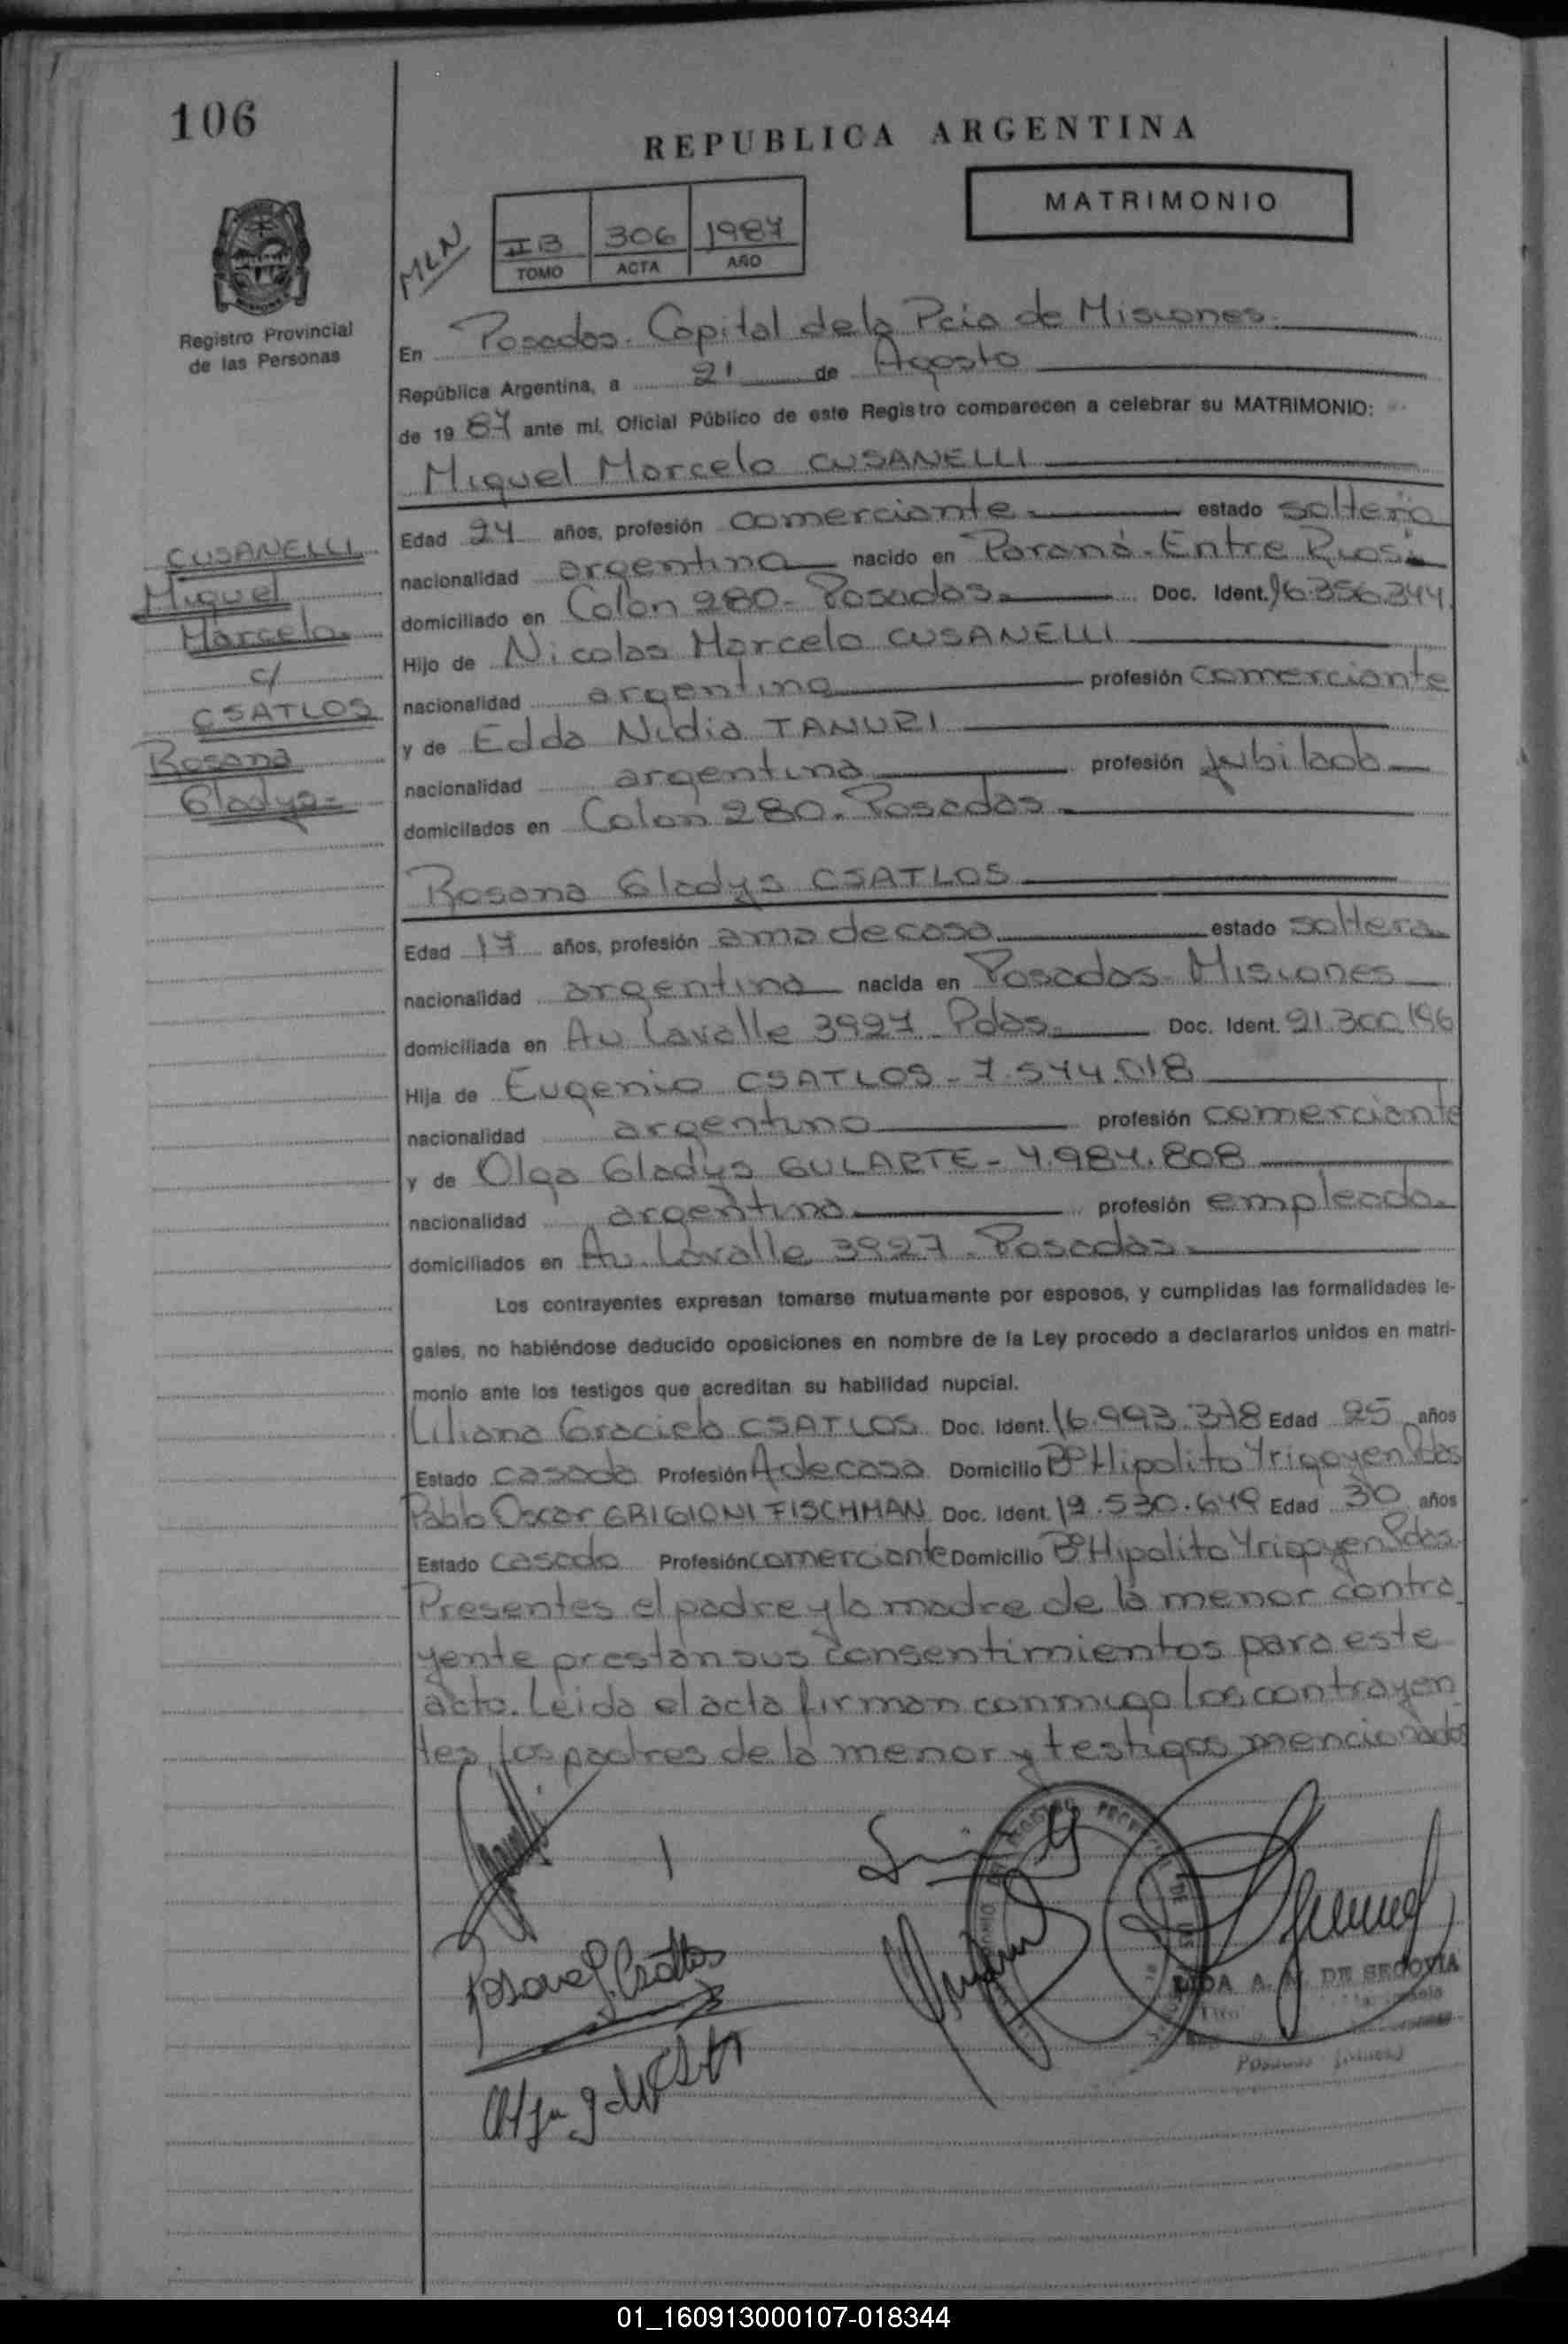 106
REPUBLICA ARGENTINA
MATRIMONIO
MLN
II B 306 1987
TOMO ACTA AÑO
Registro Provincial
de las Personas
En Posadas. Capital de la Pcia de Misiones
República Argentina, a 21 de Agosto
de 19 87 ante mí, Oficial Público de este Registro comparecen a celebrar su MATRIMONIO:
Miguel Marcelo CUSANELLI
Edad 24 años, profesión comerciante estado soltero
nacionalidad argentina nacido en Paraná - Entre Rios
domiciliado en Colon 280 - Posadas Doc. Ident. 16.356.344
Hijo de Nicolas Marcelo CUSANELLI
nacionalidad argentina profesión comerciante
y de Edda Nidia TANURI
nacionalidad argentina profesión jubilada
domiciliados en Colon 280. Posadas
CUSANELLI
Miguel
Marcelo
c/
CSATLOS
Rosana
Gladys
Rosana Gladys CSATLOS
Edad 17 años, profesión ama de casa estado soltera
nacionalidad argentina nacida en Posadas - Misiones
domiciliada en Av Lavalle 3927 - Pdas Doc. Ident. 21.300.196
Hija de Eugenio CSATLOS - 7.544.018
nacionalidad argentino profesión comerciante
y de Olga Gladys GULARTE - 4.984.808
nacionalidad argentina profesión empleada
domiciliados en Av. Lavalle 3927 - Posadas
Los contrayentes expresan tomarse mutuamente por esposos, y cumplidas las formalidades le-
gales, no habiéndose deducido oposiciones en nombre de la Ley procedo a declararlos unidos en matri-
monio ante los testigos que acreditan su habilidad nupcial.
Liliana Graciela CSATLOS Doc. Ident. 16.993.378 Edad 25 años
Estado casada Profesión A de casa Domicilio Bº Hipolito Yrigoyen Pdas
Pablo Oscar GRIGIONI FISCHMAN Doc. Ident. 12.530.649 Edad 30 años
Estado casado Profesión comerciante Domicilio Bº Hipolito Yrigoyen Pdas
Presentes el padre y la madre de la menor contra
yente prestan sus consentimientos para este
acto. Leida el acta firman conmigo los contrayen
tes, los padres de la menor y testigos mencionados
Rosana G. Csatlos
DE SEGOVIA
01_160913000107-018344